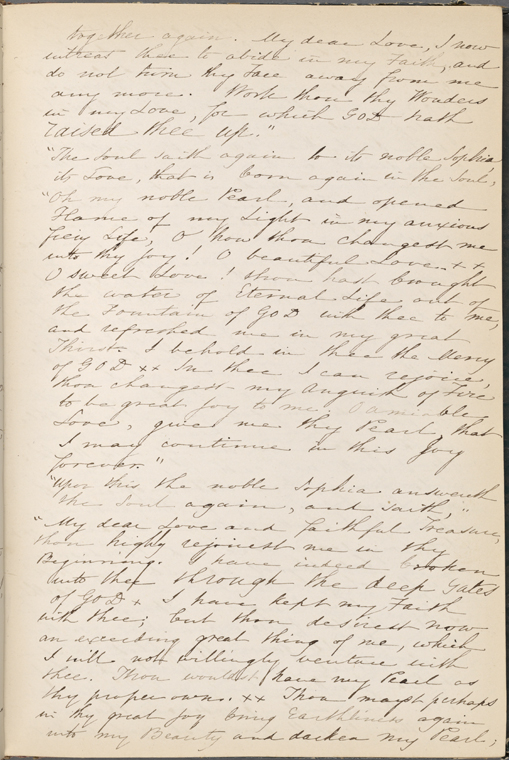 together again. My dear Love, I now
intreat thee to abide in my Faith, and
do not turn thy Face away from me
any more. Work thou thy Wonders
in my Love, for which GOD hath
raised thee up."
"The Soul saith again to its noble Sophia
its Love, that is born again in the Soul,
"Oh my noble Pearl, and opened
Flame of my Light in my anxious
fiery Life, O how thou changest me
into thy Joy! O beautiful Love. ++
O sweet Love! thou hast brought
the water of Eternal Life out of
the Fountain of GOD with thee to me,
and refreshed me in my great
Thirst. I behold in thee the Mercy
of GOD ×× In thee I can rejoice,
thou changest my Anguish of Fire
to be great Joy to me. O amiable
Love, give me thy Pearl that
I may continue in this Joy
forever."
"Upon this the noble Sophia answereth
the Soul again, and Saith,"
"My dear Love and faithful Treasure,
thou highly rejoicest me in thy
Beginning. I have indeed broken
into thee through the deep Gates
of GOD + I have kept my Faith
with thee; but thou desirest now
an exceeding great thing of me, which
I will not willingly venture with
thee. Thou wouldst have my Pearl as
thy proper own. ×× Thou mayst perhaps
in thy great Joy bring Earthliness again
into my Beauty and darken my Pearl;